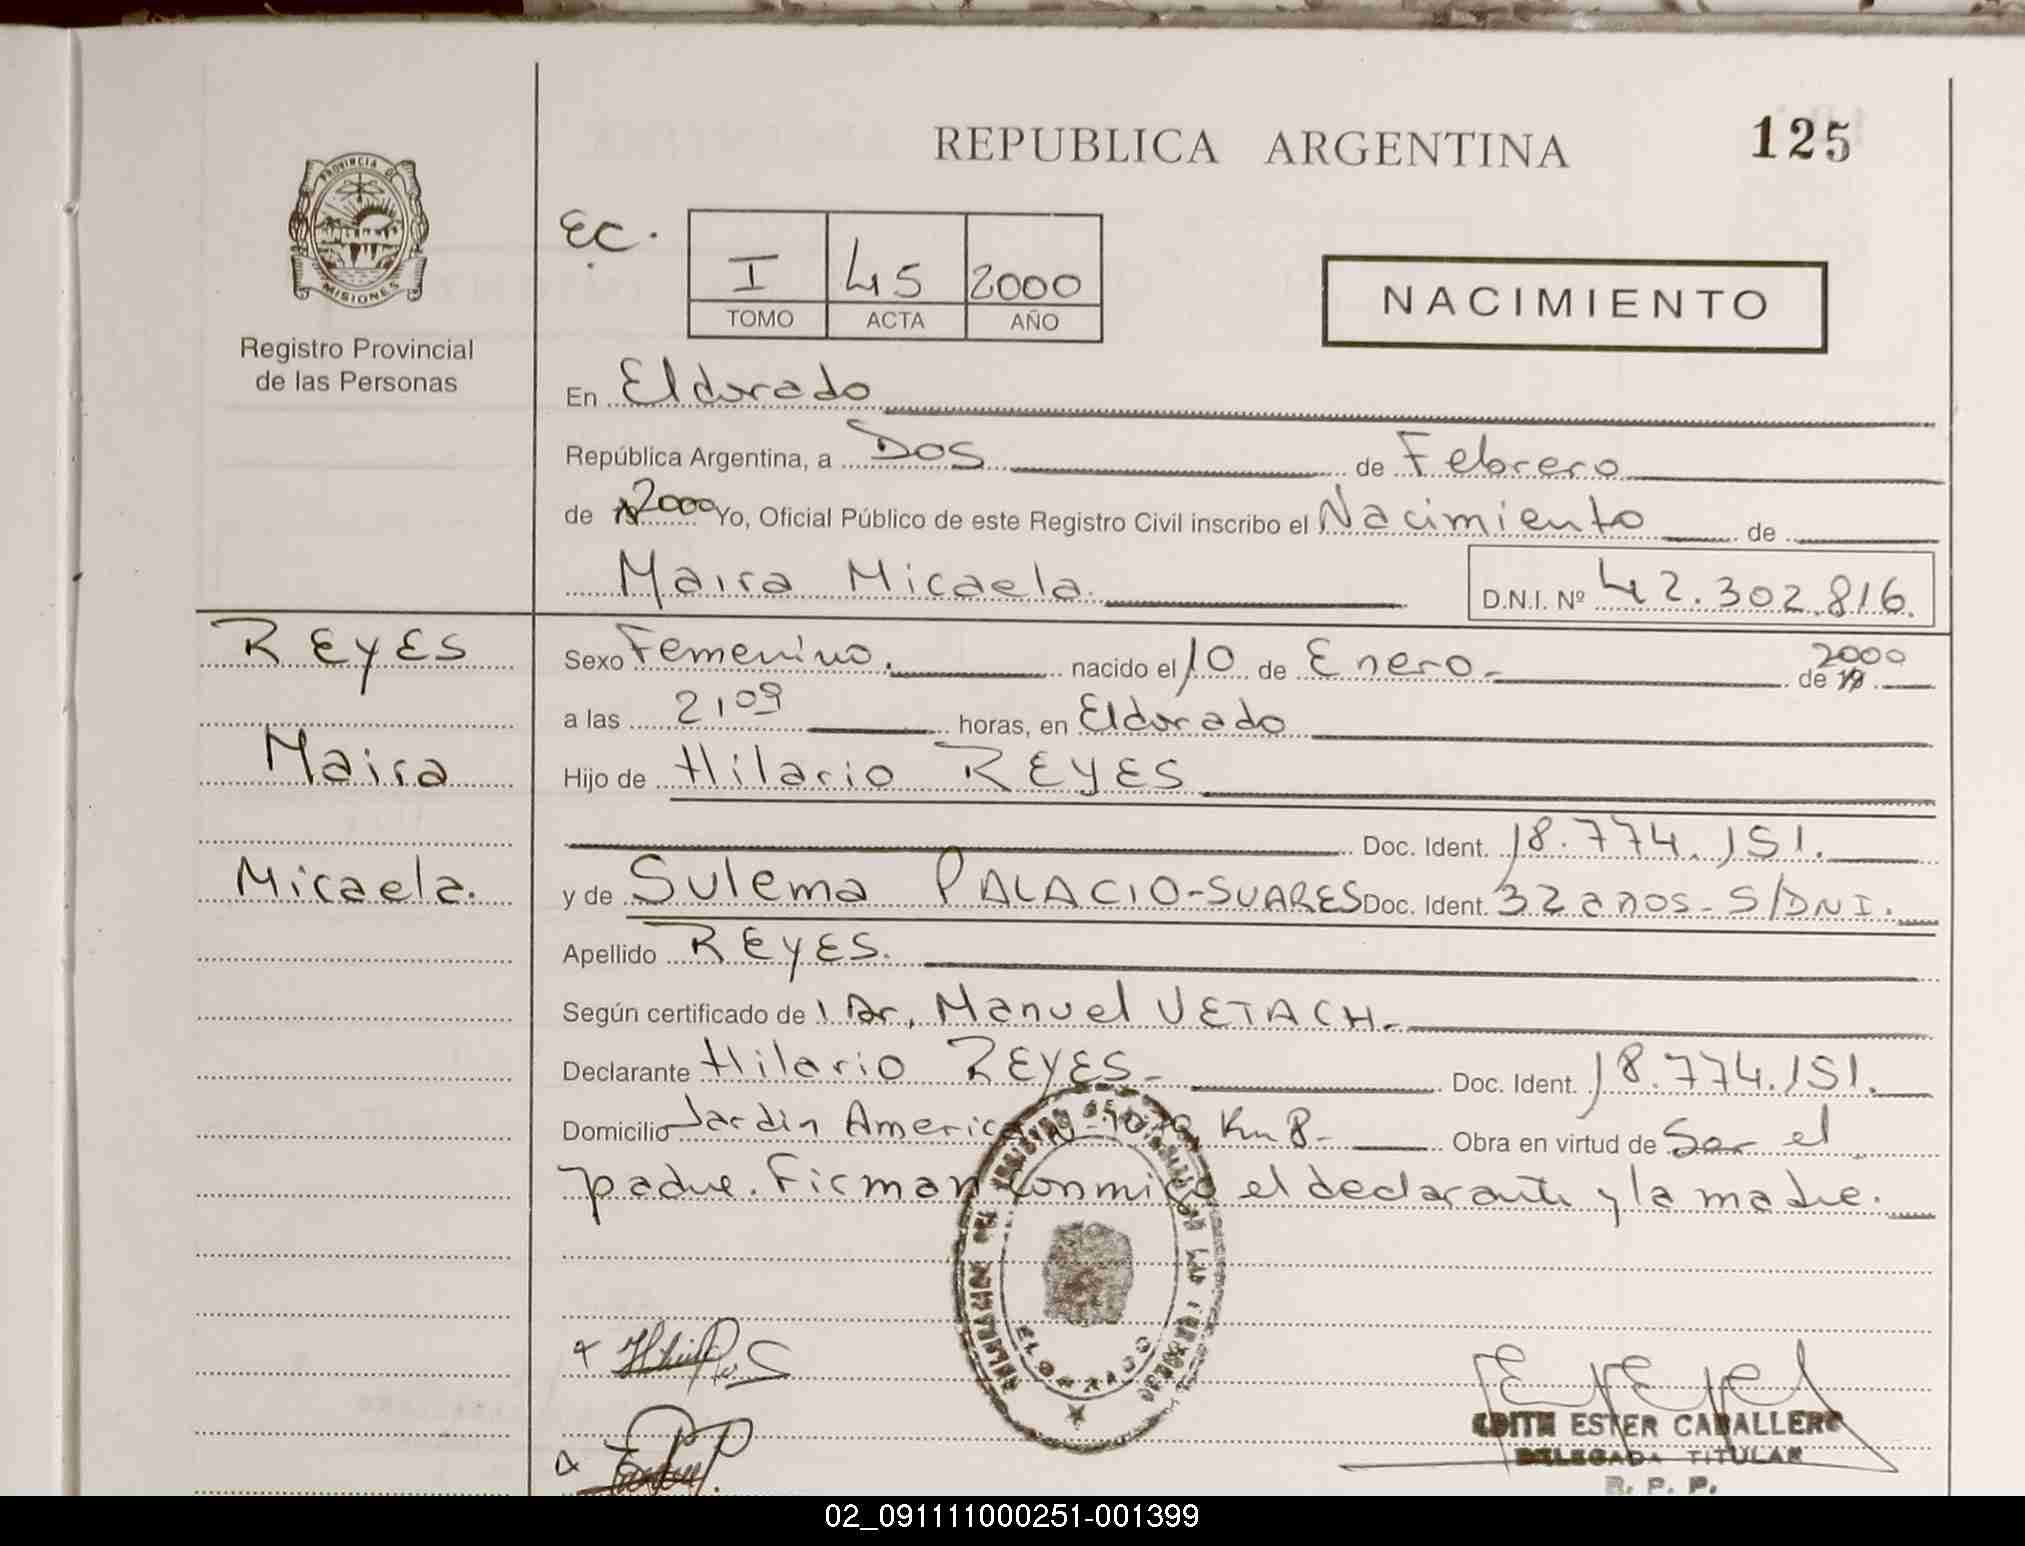 REPUBLICA ARGENTINA
125
PROVINCIA DE
MISIONES
Registro Provincial
de las Personas
EC.
I 45 2000
TOMO ACTA AÑO
NACIMIENTO
En Eldorado
República Argentina, a Dos de Febrero
de 2000 Yo, Oficial Público de este Registro Civil inscribo el Nacimiento de
Maira Micaela. D.N.I. Nº 42.302.816.
REYES
Maira
Micaela.
Sexo Femenino. nacido el 10 de Enero de 19 2000
a las 2109 horas, en Eldorado
Hijo de Hilario REYES
Doc. Ident. 18.774.151.
y de Sulema PALACIO-SUARES Doc. Ident. 32 anos - S/DNI.
Apellido REYES.
Según certificado de Dr. Manuel VETACH.
Declarante Hilario REYES Doc. Ident. 18.774.151.
Domicilio Jardin Km 8 - Obra en virtud de Ser el
padre. Firman conmigo el declarante y la madre.
ELDORADO
EDITH ESTER CABALLERO
DELEGADA TITULAR
R. P. P.
02_091111000251-001399